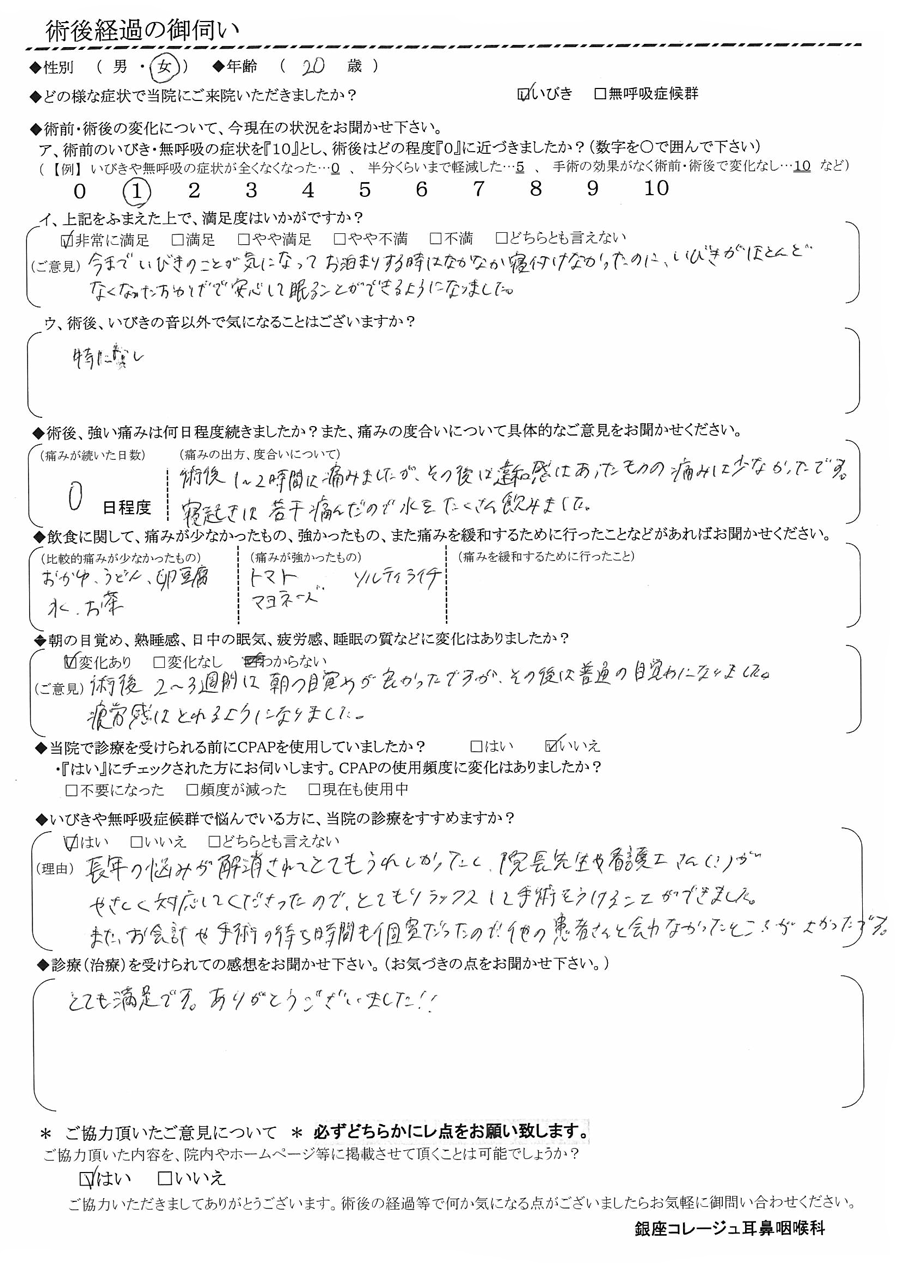 術後経過の御伺い
◆性別 ( 男 ・ 女 ) ◆年齢 ( 20 歳 )
◆どの様な症状で当院にご来院いただきましたか? ☑いびき □無呼吸症候群
◆術前・術後の変化について、今現在の状況をお聞かせ下さい。
ア、術前のいびき・無呼吸の症状を『10』とし、術後はどの程度『0』に近づきましたか?(数字を〇で囲んで下さい)
(【例】いびきや無呼吸の症状が全くなくなった…0 、 半分くらいまで軽減した…5 、 手術の効果がなく術前・術後で変化なし…10 など)
0 1 2 3 4 5 6 7 8 9 10
イ、上記をふまえた上で、満足度はいかがですか?
☑非常に満足 □満足 □やや満足 □やや不満 □不満 □どちらとも言えない
(ご意見) 今までいびきのことが気になってお泊まりする時はなかなか寝付けなかったのに、いびきがほとんど
なくなったおかげで安心して眠ることができるようになりました。
ウ、術後、いびきの音以外で気になることはございますか?
特に無し
◆術後、強い痛みは何日程度続きましたか?また、痛みの度合いについて具体的なご意見をお聞かせください。
(痛みが続いた日数) (痛みの出方、度合いについて)
0 日程度
術後 1〜2時間は痛みましたが、その後は違和感はあったものの 痛みは少なかったです。
寝起きは若干痛んだので水をたくさん飲みました。
◆飲食に関して、痛みが少なかったもの、強かったもの、また痛みを緩和するために行ったことなどがあればお聞かせください。
(比較的痛みが少なかったもの) (痛みが強かったもの) (痛みを緩和するために行ったこと)
おかゆ、うどん、卵豆腐 トマト ソルティライチ
水、お茶 マヨネーズ
◆朝の目覚め、熟睡感、日中の眠気、疲労感、睡眠の質などに変化はありましたか?
☑変化あり □変化なし □わからない
(ご意見) 術後 2〜3週間は朝の目覚めが良かったですが、その後は普通の目覚めになりました。
疲労感はとれるようになりました。
◆当院で診療を受けられる前にCPAPを使用していましたか? □はい ☑いいえ
・『はい』にチェックされた方にお伺いします。CPAPの使用頻度に変化はありましたか?
□不要になった □頻度が減った □現在も使用中
◆いびきや無呼吸症候群で悩んでいる方に、当院の診療をすすめますか?
☑はい □いいえ □どちらとも言えない
(理由) 長年の悩みが解消されてとてもうれしかったし、院長先生や看護士さんが
やさしく対応してくださったので、とてもリラックスして手術をうけることができました。
また、お会計や手術の待ち時間も個室だったので他の患者さんと会わなかったところがよかったです。
◆診療(治療)を受けられての感想をお聞かせ下さい。(お気づきの点をお聞かせ下さい。)
とても満足です。ありがとうございました!!
* ご協力頂いたご意見について * 必ずどちらかにレ点をお願い致します。
ご協力頂いた内容を、院内やホームページ等に掲載させて頂くことは可能でしょうか?
☑はい □いいえ
ご協力いただきましてありがとうございます。術後の経過等で何か気になる点がございましたらお気軽に御問い合わせください。
銀座コレージュ耳鼻咽喉科